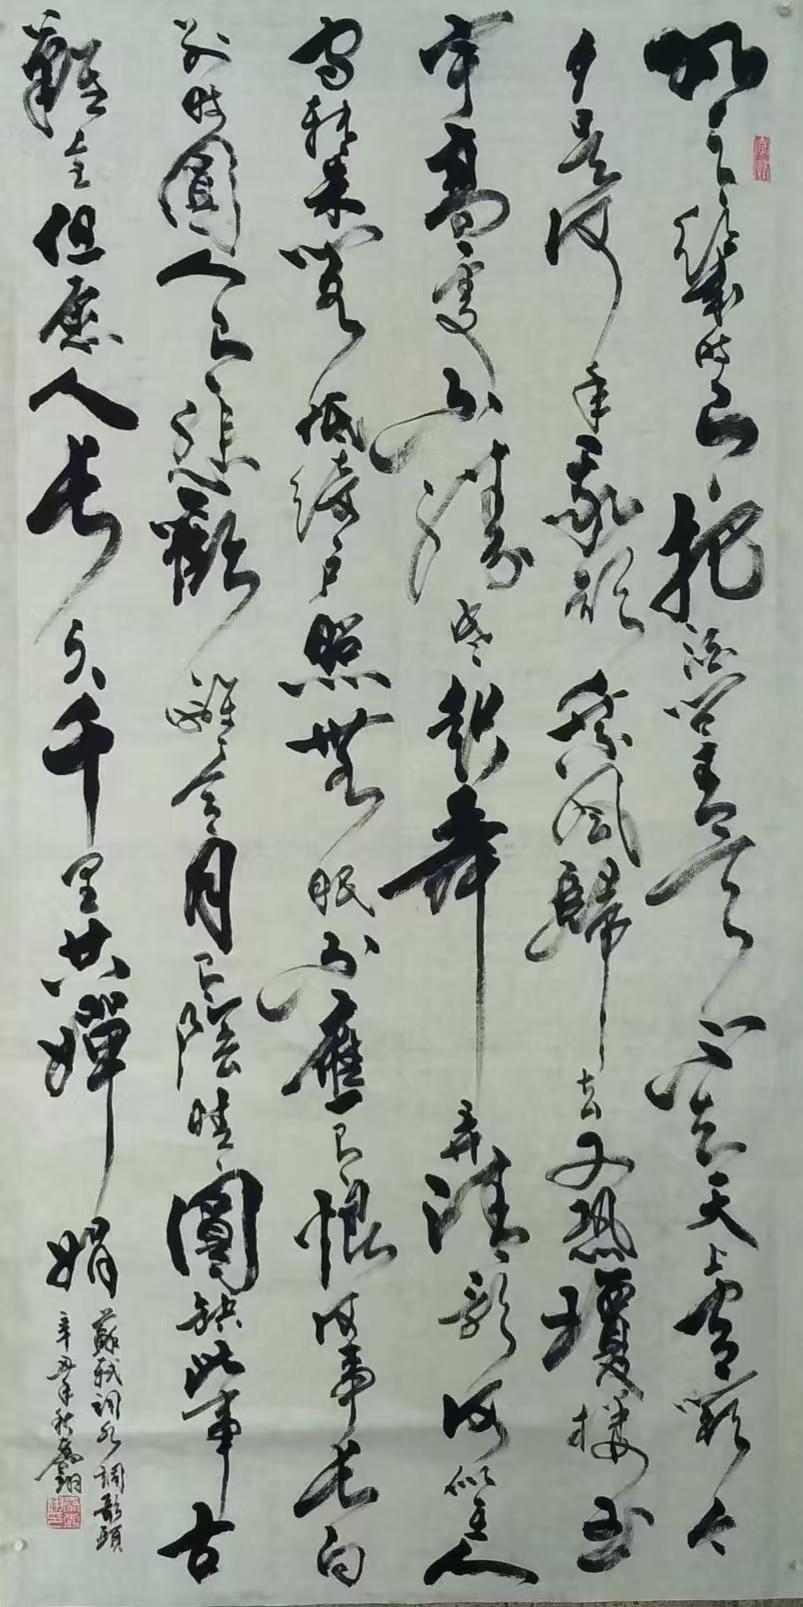 明月幾時有把酒問青天不知天上宮闕今
夕是何年我欲乘風歸去又恐瓊樓玉
宇高處不勝寒起舞弄清影何似在人
間轉朱閣低綺戶照無眠不應有恨何事長向
別時圓人有悲歡離合月有陰晴圓缺此事古
難全但愿人長久千里共嬋娟
蘇軾詞水調歌頭
辛丑年秋